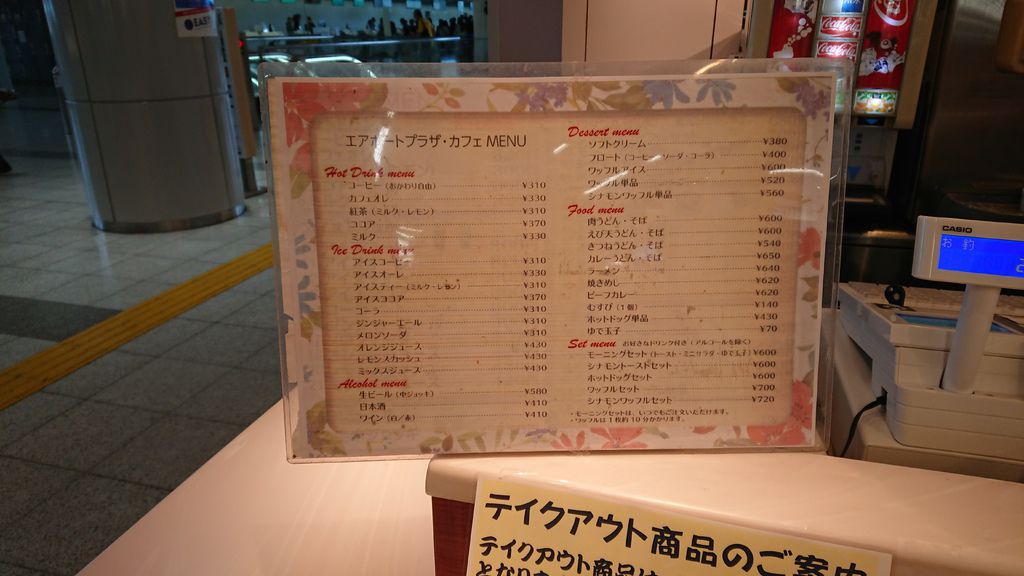 EASY
エアポートプラザ・カフェ MENU
Hot Drink menu
コーヒー（おかわり自由） ¥310
カフェオレ ¥330
紅茶（ミルク・レモン） ¥310
ココア ¥370
ミルク ¥330
Ice Drink menu
アイスコーヒー ¥310
アイスオーレ ¥330
アイスティー（ミルク・レモン） ¥310
アイスココア ¥370
コーラ ¥310
ジンジャーエール ¥310
メロンソーダ ¥310
オレンジジュース ¥430
レモンスカッシュ ¥430
ミックスジュース ¥430
Alcohol menu
生ビール（中ジョッキ） ¥580
日本酒 ¥410
ワイン（白／赤） ¥410
Dessert menu
ソフトクリーム ¥380
フロート（コーヒー・ソーダ・コーラ） ¥400
ワッフルアイス ¥600
ワッフル単品 ¥520
シナモンワッフル単品 ¥560
Food menu
肉うどん・そば ¥600
えび天うどん・そば ¥600
きつねうどん・そば ¥540
カレーうどん・そば ¥650
ラーメン ¥640
焼きめし ¥620
ビーフカレー ¥620
むすび（1個） ¥140
ホットドッグ単品 ¥430
ゆで玉子 ¥70
Set menu お好きなドリンク付き（アルコールを除く）
モーニングセット（トースト・ミニサラダ・ゆで玉子） ¥600
シナモントーストセット ¥600
ホットドッグセット ¥600
ワッフルセット ¥700
シナモンワッフルセット ¥720
・モーニングセットは、いつでもご注文いただけます。
・ワッフルは1枚約10分かかります。
Coca-Cola
CASIO
お釣
テイクアウト商品のご案内
テイクアウト商品は
となり